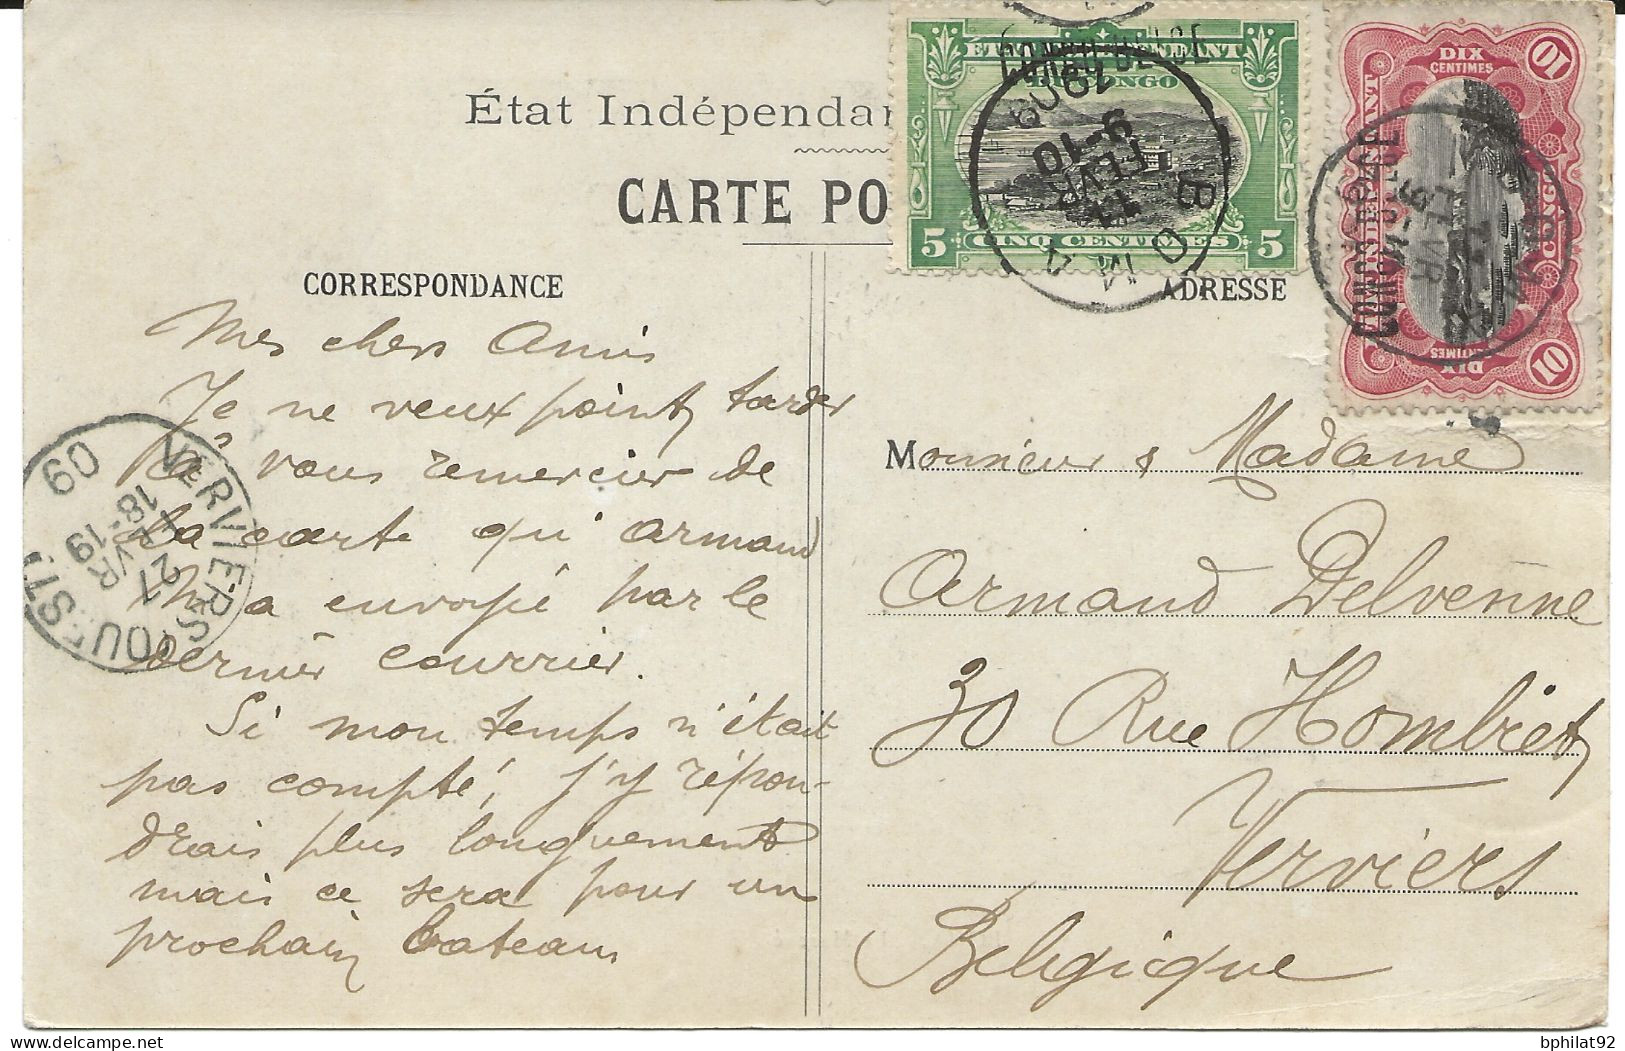 État Indépendan
CARTE PO
CORRESPONDANCE
ADRESSE
Mes chers Amis
Je ne veux point tarder
à vous remercier de
la carte qu'armand
m'a envoyé par le
dernier courrier.
Si mon temps n'était
pas compté, j'y répon-
drais plus longuement
mais ce sera pour un
prochain bateau
Monsieur & Madame
Armand Delvenne
30 Rue Hombiet
Verviers
Belgique
ÉTAT INDÉPENDANT
DU CONGO
CONGO BELGE
5 CINQ CENTIMES 5
BOMA
11
FEVR
9-10
1909
10 DIX CENTIMES 10
CONGO BELGE
VERVIERS OUEST
27
FEVR
18-19
09
bphilat92